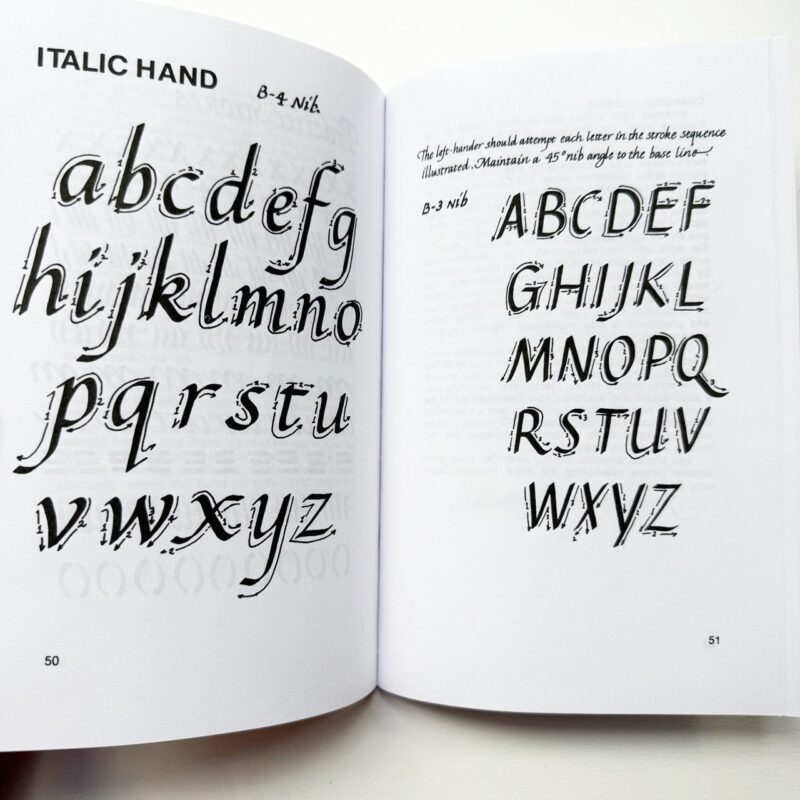 ITALIC HAND
B-4 Nib.
abcdefg
hijklmno
pqrstu
vwxyz
50
The left-hander should attempt each letter in the stroke sequence
illustrated. Maintain a 45° nib angle to the base line
B-3 Nib
ABCDEF
GHIJKL
MNOPQ
RSTUV
WXYZ
51